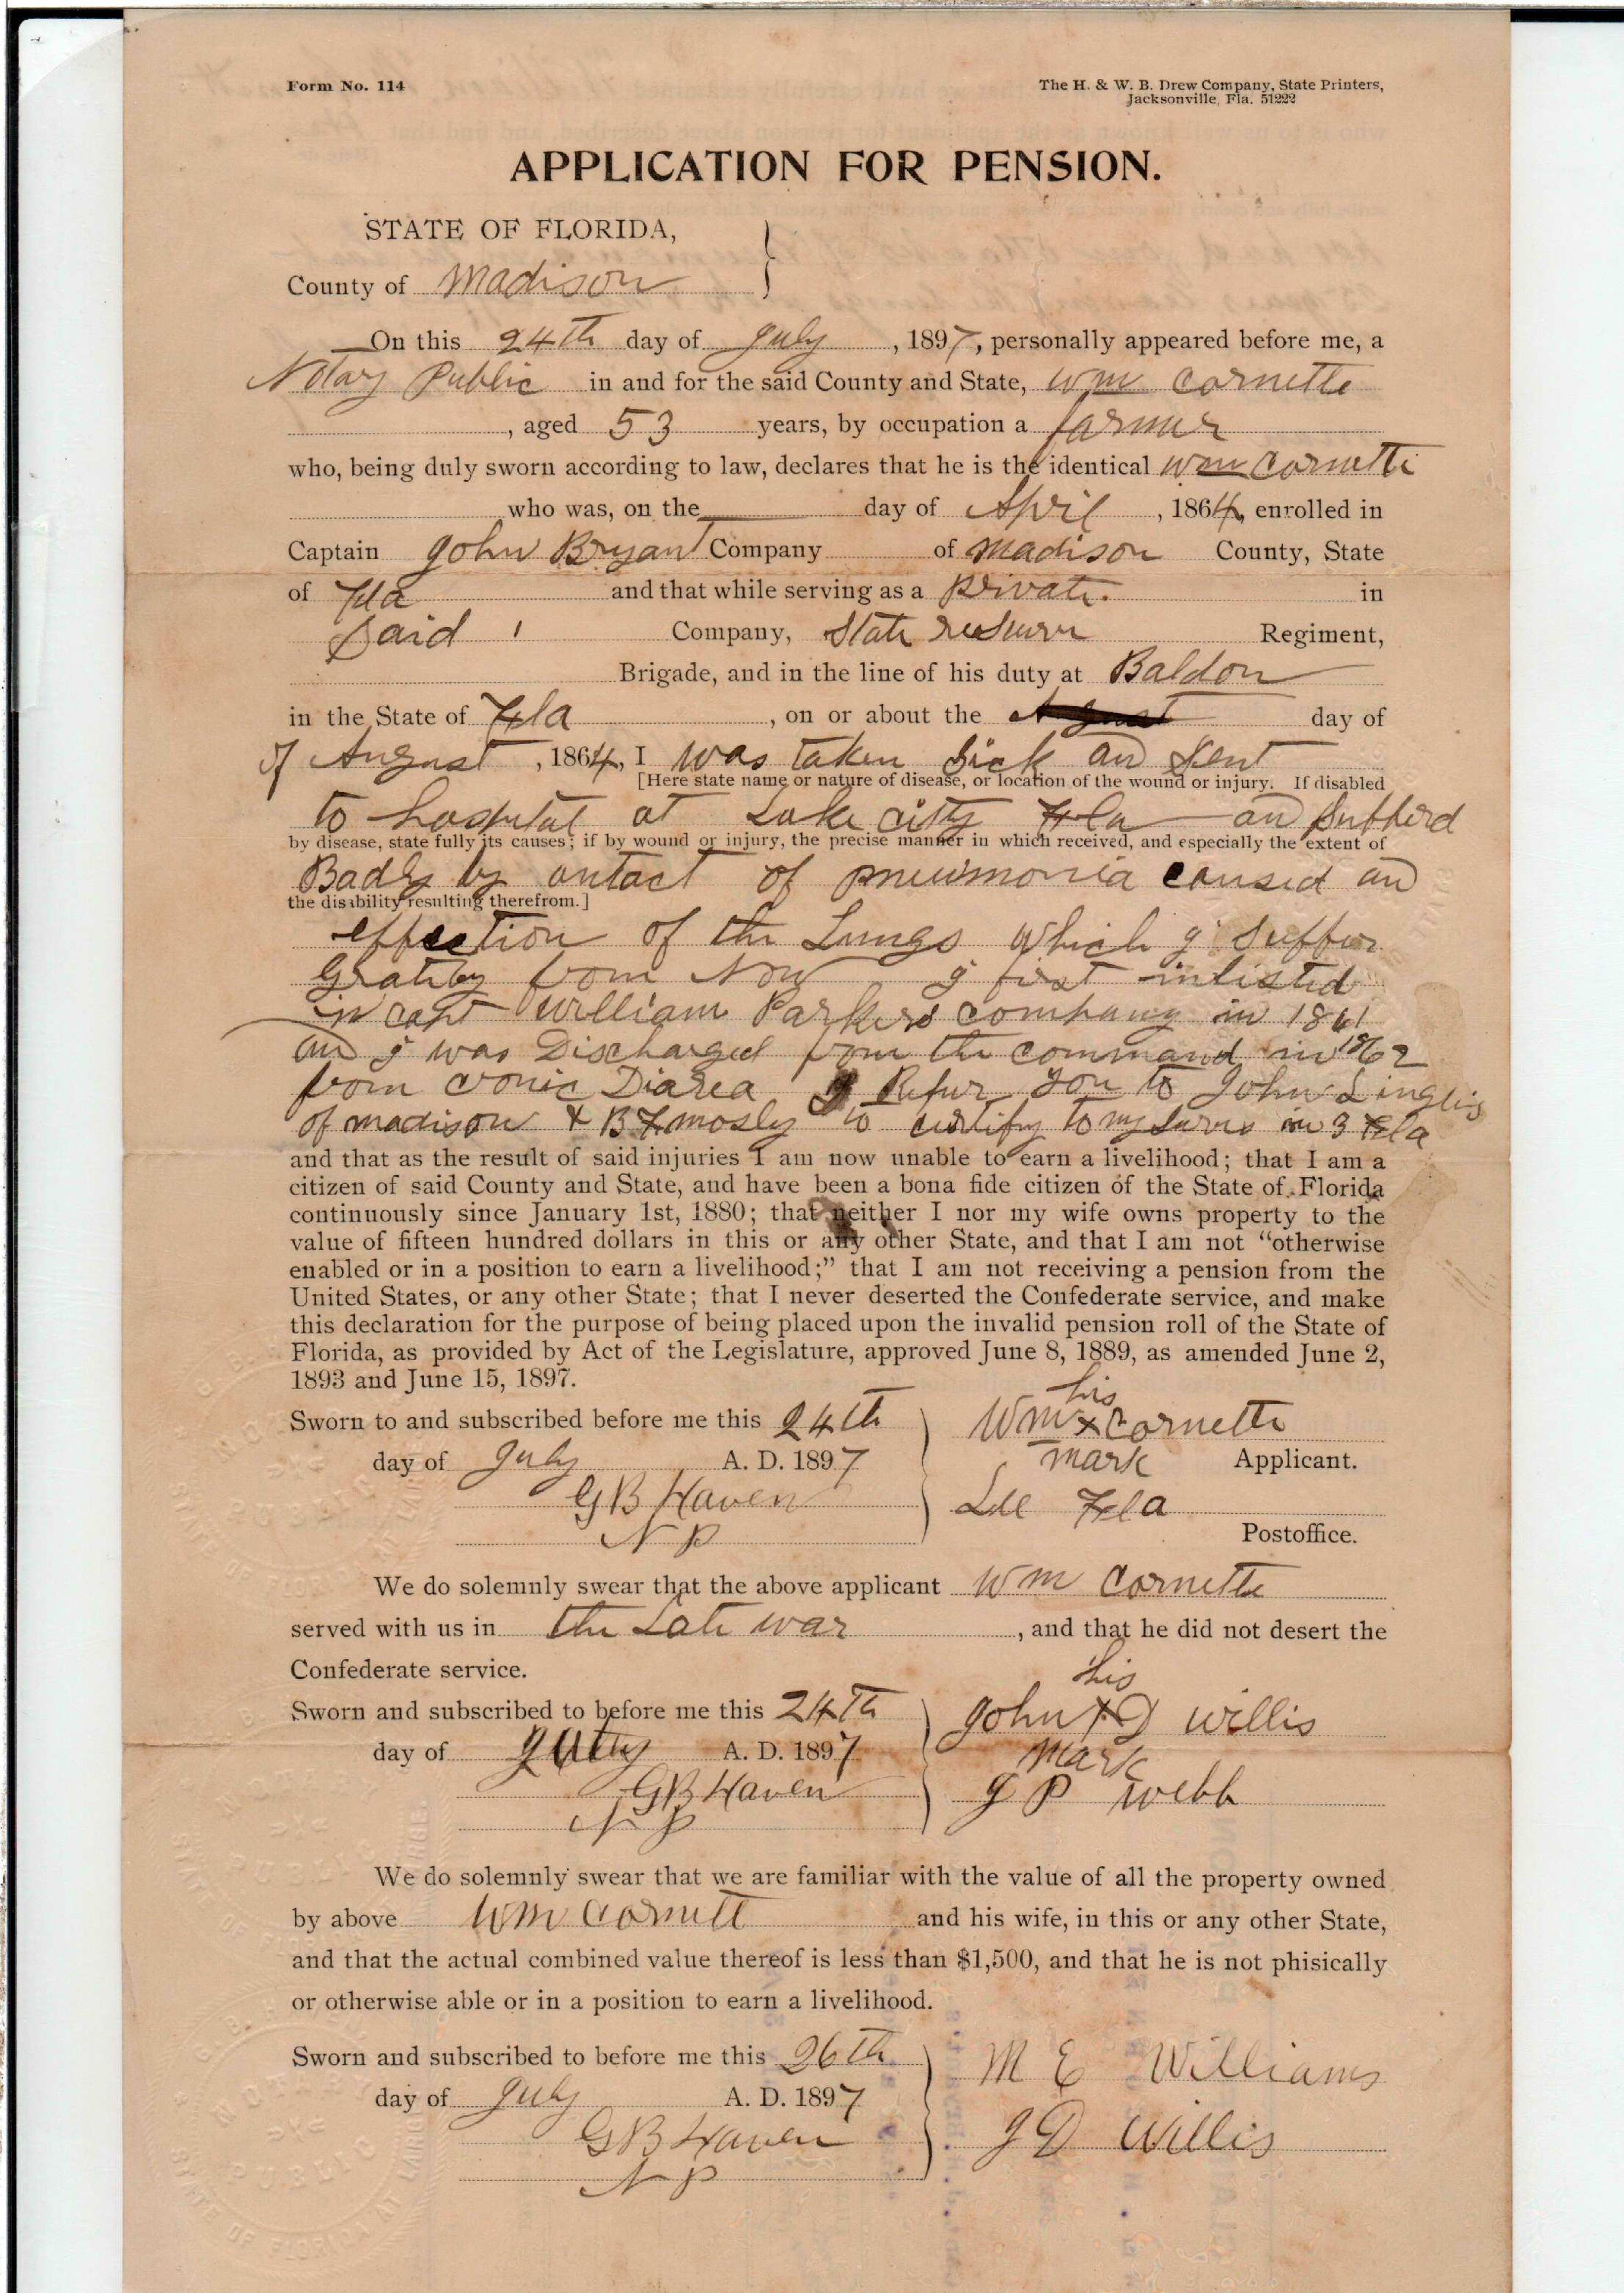 Form No. 114
The H. & W. B. Drew Company, State Printers,
Jacksonville, Fla. 51222
APPLICATION FOR PENSION.
STATE OF FLORIDA,
County of Madison
On this 24th day of July, 1897, personally appeared before me, a
Notary Public in and for the said County and State, Wm Cornette
, aged 53 years, by occupation a farmer
who, being duly sworn according to law, declares that he is the identical Wm Cornette
who was, on the day of April, 1864, enrolled in
Captain John Bryant Company of Madison County, State
of Fla and that while serving as a Private. in
Said Company, State Reserve Regiment,
Brigade, and in the line of his duty at Baldon
in the State of Fla, on or about the day of
of August, 1864, I was taken Sick an Sent
[Here state name or nature of disease, or location of the wound or injury. If disabled
to hospital at Lake city Fla an Sufferd
by disease, state fully its causes; if by wound or injury, the precise manner in which received, and especially the extent of
Badly by of pneumonia caused an
the disability resulting therefrom.]
effection of the Lungs which I Suffer
from Now I first inlisted
in capt William Parkers company in 1861
an I was Discharged from the command in 1862
from cronic Diarea I Refur you to John L Inglis
of madison & B F mosly to certify to my in 3 Fla
and that as the result of said injuries I am now unable to earn a livelihood; that I am a
citizen of said County and State, and have been a bona fide citizen of the State of Florida
continuously since January 1st, 1880; that neither I nor my wife owns property to the
value of fifteen hundred dollars in this or any other State, and that I am not "otherwise
enabled or in a position to earn a livelihood;" that I am not receiving a pension from the
United States, or any other State; that I never deserted the Confederate service, and make
this declaration for the purpose of being placed upon the invalid pension roll of the State of
Florida, as provided by Act of the Legislature, approved June 8, 1889, as amended June 2,
1893 and June 15, 1897.
his
Sworn to and subscribed before me this 24th Wm x Cornette
day of July A. D. 1897 mark Applicant.
G B Haven Lee Fla
N P Postoffice.
We do solemnly swear that the above applicant Wm Cornette
served with us in the Late war, and that he did not desert the
Confederate service.
his
Sworn and subscribed to before me this 24th John x D Willis
day of July A. D. 1897 Mark
G B Haven J P Webb
N P
We do solemnly swear that we are familiar with the value of all the property owned
by above Wm Cornett and his wife, in this or any other State,
and that the actual combined value thereof is less than $1,500, and that he is not phisically
or otherwise able or in a position to earn a livelihood.
Sworn and subscribed to before me this 26th M E Williams
day of July A. D. 1897
G B Haven J D Willis
N P